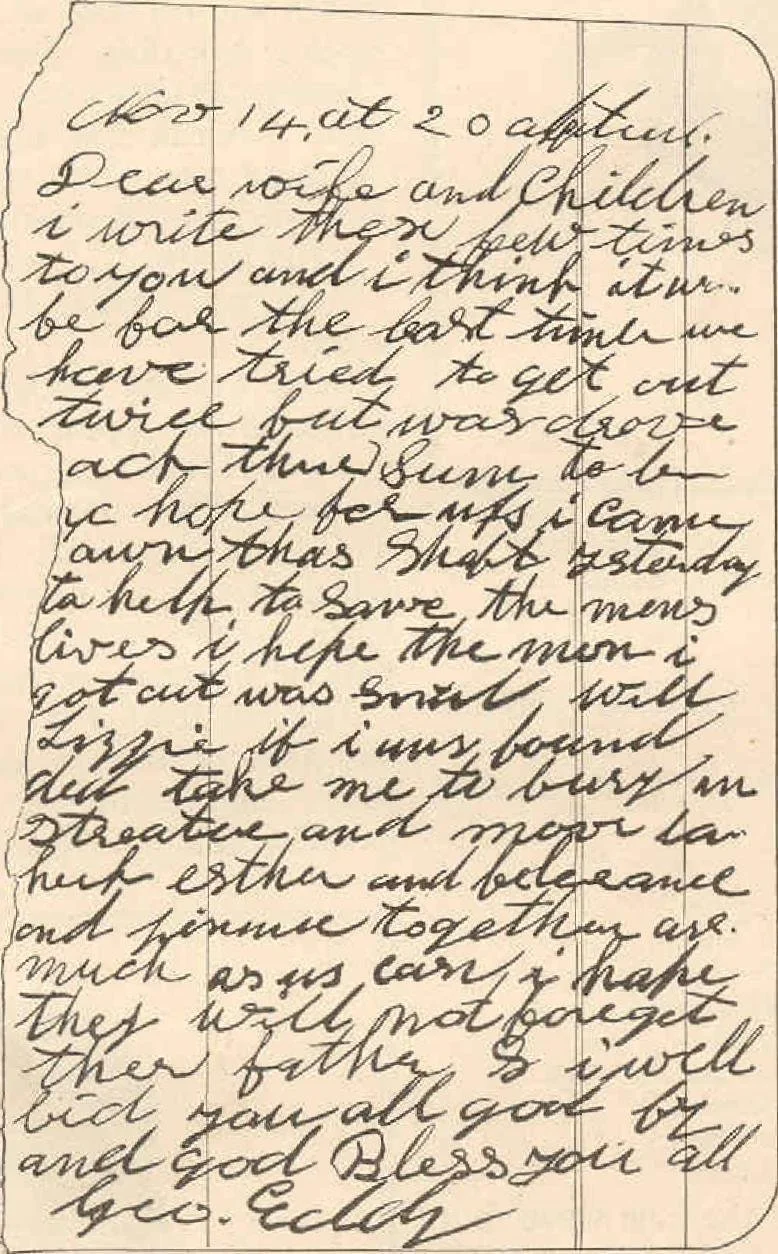 Nov 14, at 2 o
Dear wife and Children
i write thes few times
to you and i think it
be for the last time we
have tried to get out
twice but was drove
ack thue sum to be
hope for us i came
own thas Shaft ysterday
to help to save the mens
lives i hope the men i
got out was will
Lizzie if i found
ded take me to bury in
Streator and move
esther and
and together
much as us can i hope
they will not forget
ther father so i well
bid you all god by
and god Bless you all
Geo. Eddy